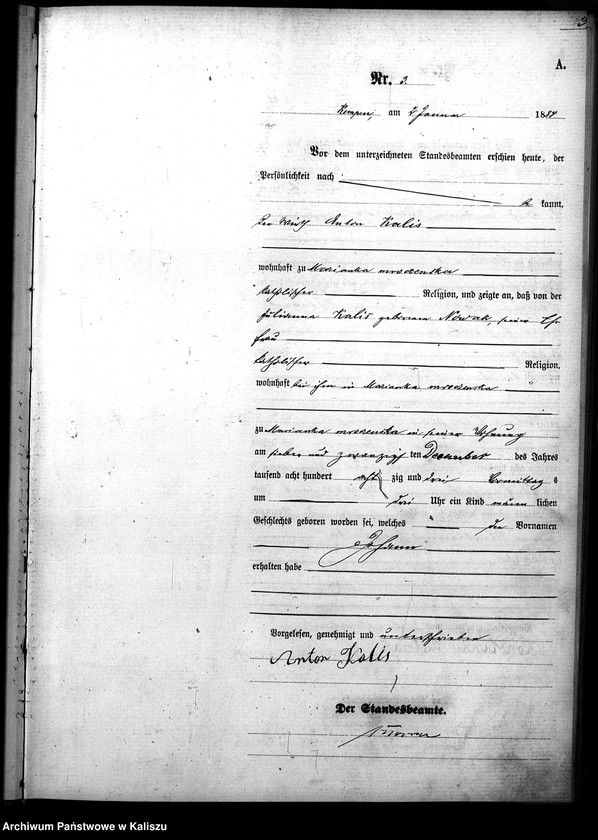 3
A.
Nr. 3.
Kempen, am 2 Januar 1884
Vor dem unterzeichneten Standesbeamten erschien heute, der
Persönlichkeit nach
be kannt,
der Wirth Anton Kalis
wohnhaft zu Marianka mroczenska
katholischer Religion, und zeigte an, daß von der
Julianna Kalis geborenen Nowak, seiner Ehe
frau
katholischer Religion,
wohnhaft bei ihm in Marianka mroczenska
zu Marianka mroczenska in seiner Wohnung
am sieben und zwanzigsten December des Jahres
tausend acht hundert acht zig und drei Vormittag s
um drei Uhr ein Kind männ lichen
Geschlechts geboren worden sei, welches den Vornamen
Johann
erhalten habe
Vorgelesen, genehmigt und unterschrieben
Anton Kalis
Der Standesbeamte.
Archiwum Państwowe w Kaliszu